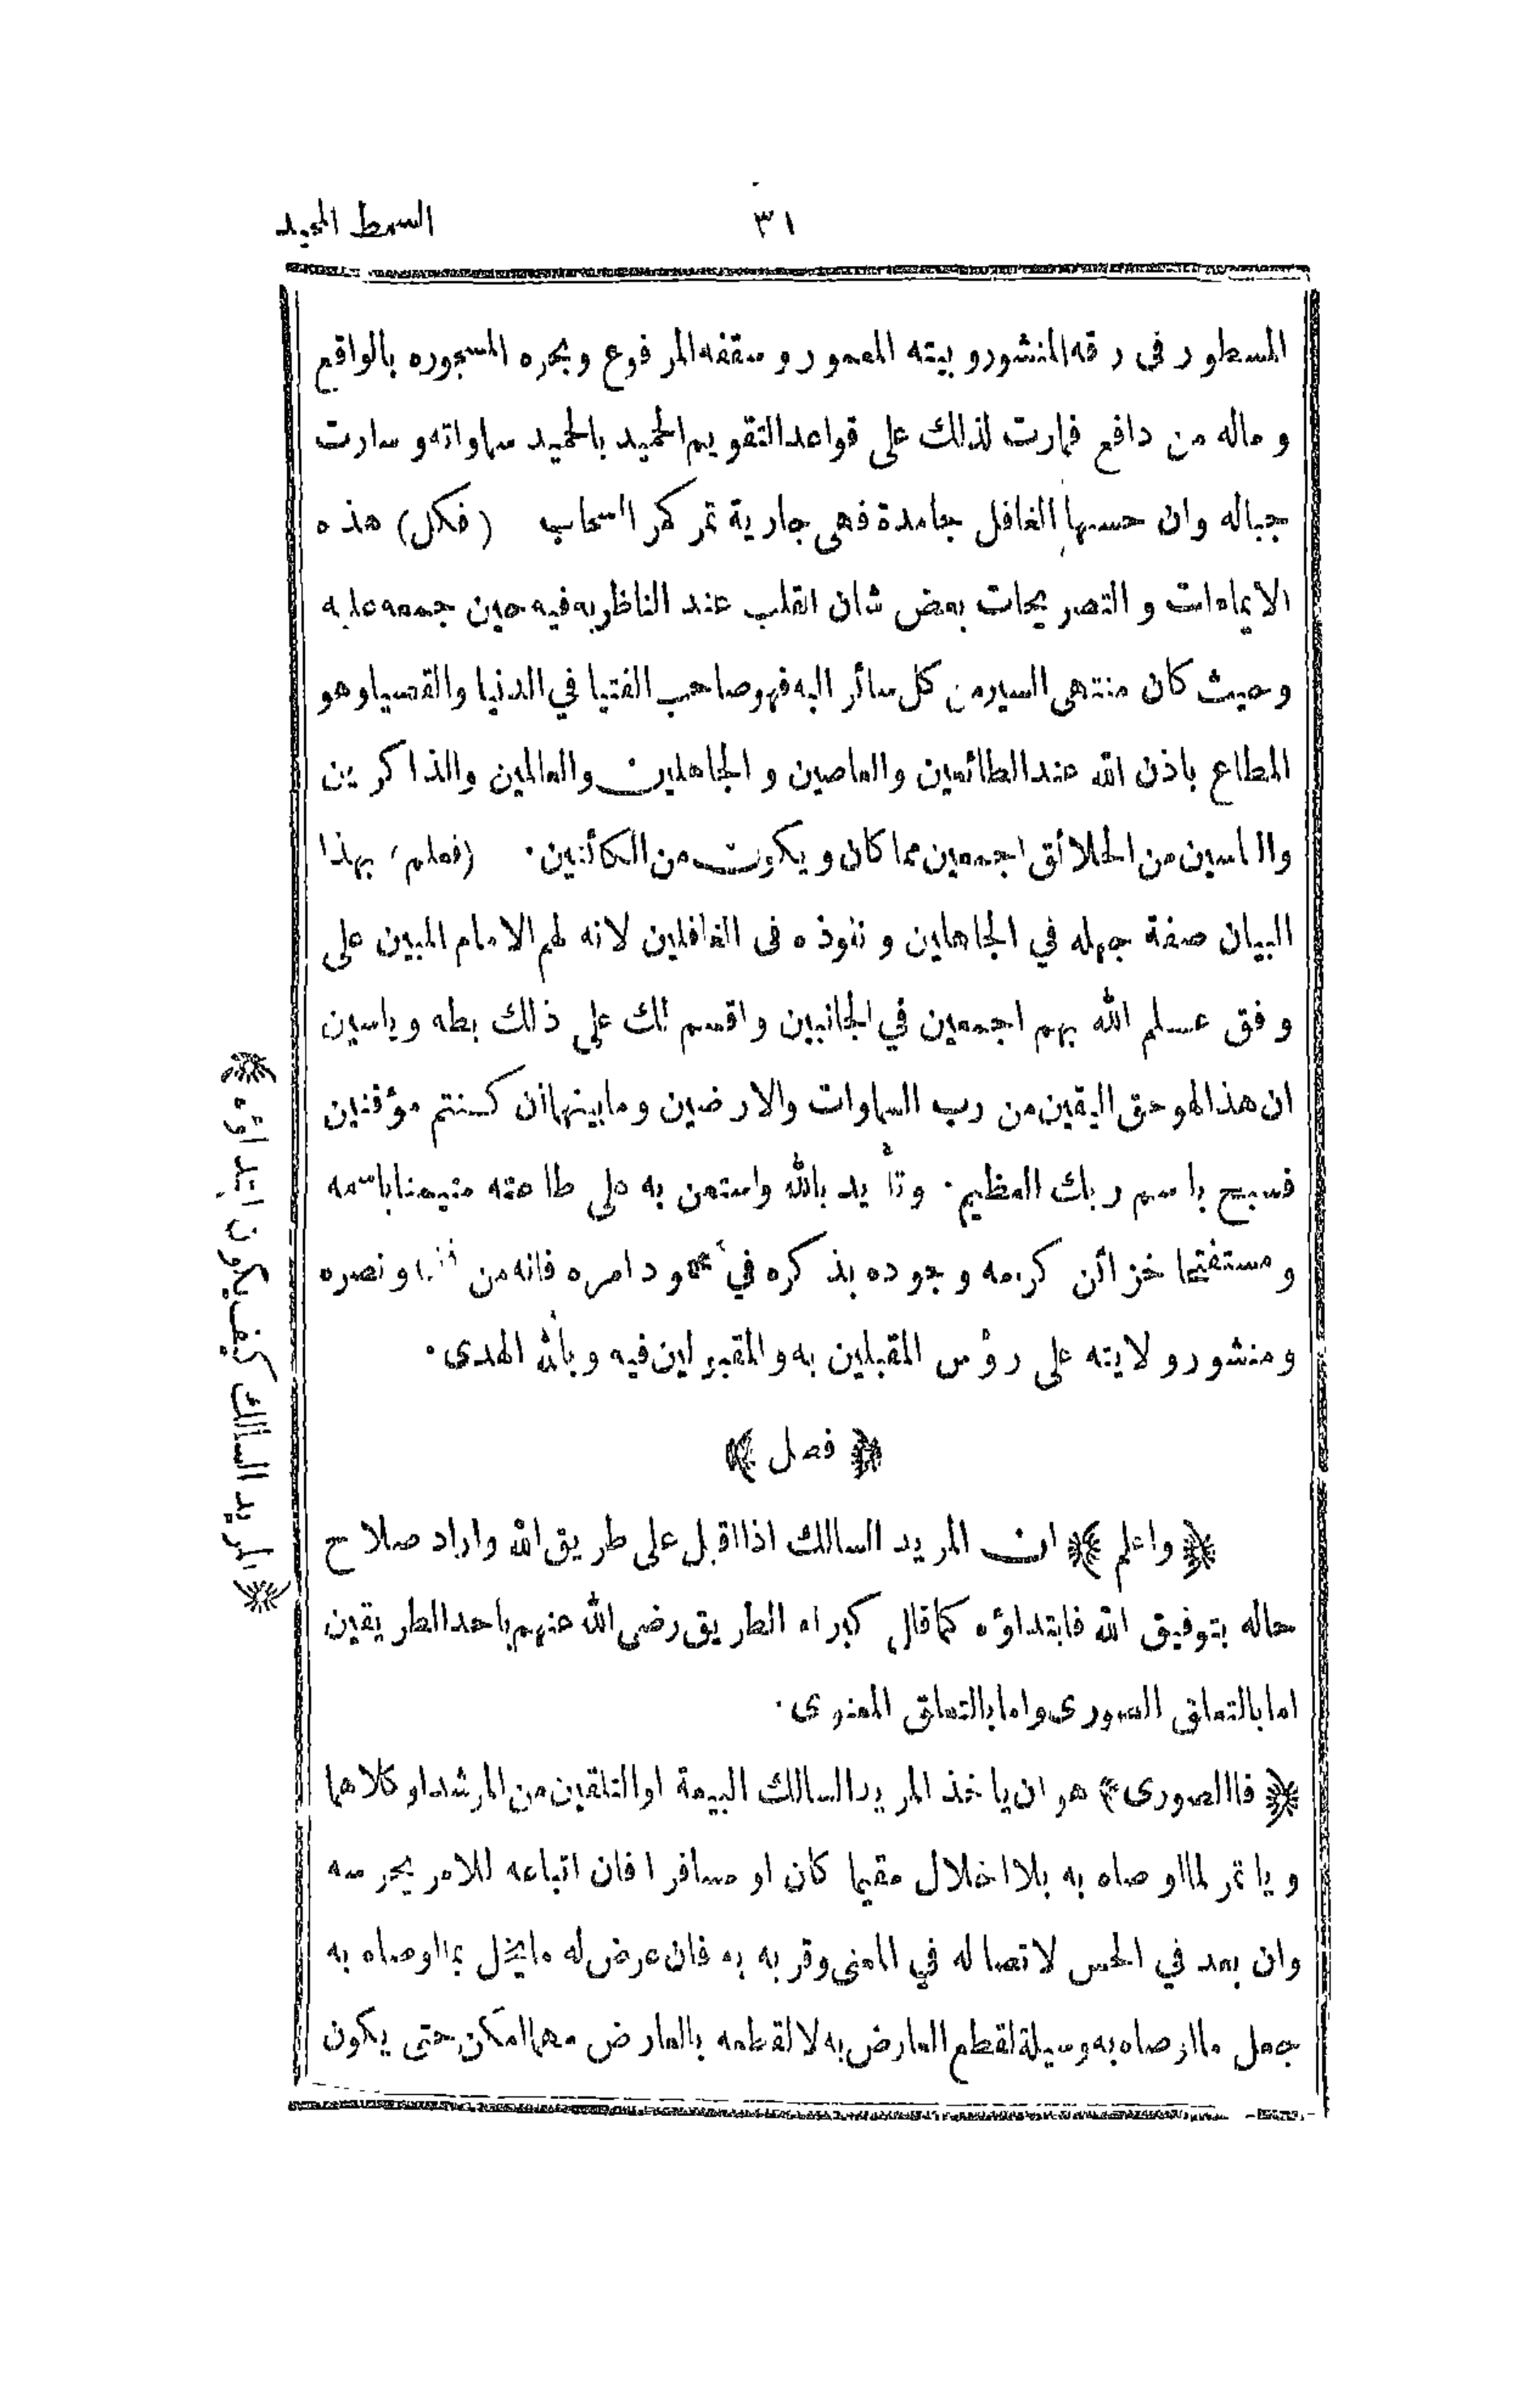 ٣١
السمط المجيد
المسطور فى رقه المنشور وبيته المعمور وسقفه المرفوع وبحره المسجوره بالواقع
وماله من دافع فمارت لذلك على قواعد التقويم الحميد بالحميد سماواته وسارت
جباله وان حسبها الغافل جامدة فهى جارية تمر كمر السحاب (فكل) هذه
الايماءات و التصريحات بعض شان القلب عند الناظر به فيه حين جمعه عليه
وحيث كان منتهى السير من كل سائر اليه فهو صاحب الفتيا في الدنيا والقصيا وهو
المطاع باذن الله عند الطائعين والعاصين و الجاهلين والعالمين والذاكرين
والناسين من الخلائق اجمعين مما كان ويكون من الكائنين. (فعلم) بهذا
البيان صفة جهله في الجاهلين و نفوذه فى الغافلين لانه لهم الامام المبين على
وفق علم الله بهم اجمعين في الجانبين واقسم لك على ذلك بطه وياسين
ان هذا لهو حق اليقين من رب السماوات والارضين وما بينهما ان كنتم موقنين
فسبح باسم ربك العظيم. وتأيد بالله واستعن به على طاعته متيمنا باسمه
ومستفتحا خزائن كرمه وجوده بذكره في وامره فانه من ونصره
ومنشور ولايته على رؤس المقبلين به والمقبولين فيه وبالله الهدى.
﴿ فصل ﴾
﴿ واعلم ﴾ ان المريد السالك اذا اقبل على طريق الله واراد صلاح
حاله بتوفيق الله فابتداؤه كما قال كبراء الطريق رضى الله عنهم باحد الطريقين
اما بالتعلق الصورى واما بالتعلق المعنوى.
﴿ فاالصورى ﴾ هو ان ياخذ المريد السالك البيعة او التلقين من المرشد او كلاهما
وياتمر لما اوصاه به بلا اخلال مقيما كان او مسافرا فان اتباعه للامر يحرسه
وان بعد في الحس لاتصاله في المعنى وقربه به فان عرض له ما يخل بما اوصاه به
جعل ما اوصاه به وسيلة لقطع العارض به لا لقطعه بالعارض مهما امكن حتى يكون
﴿ المريد السالك كيف يكون ابتداؤه ﴾